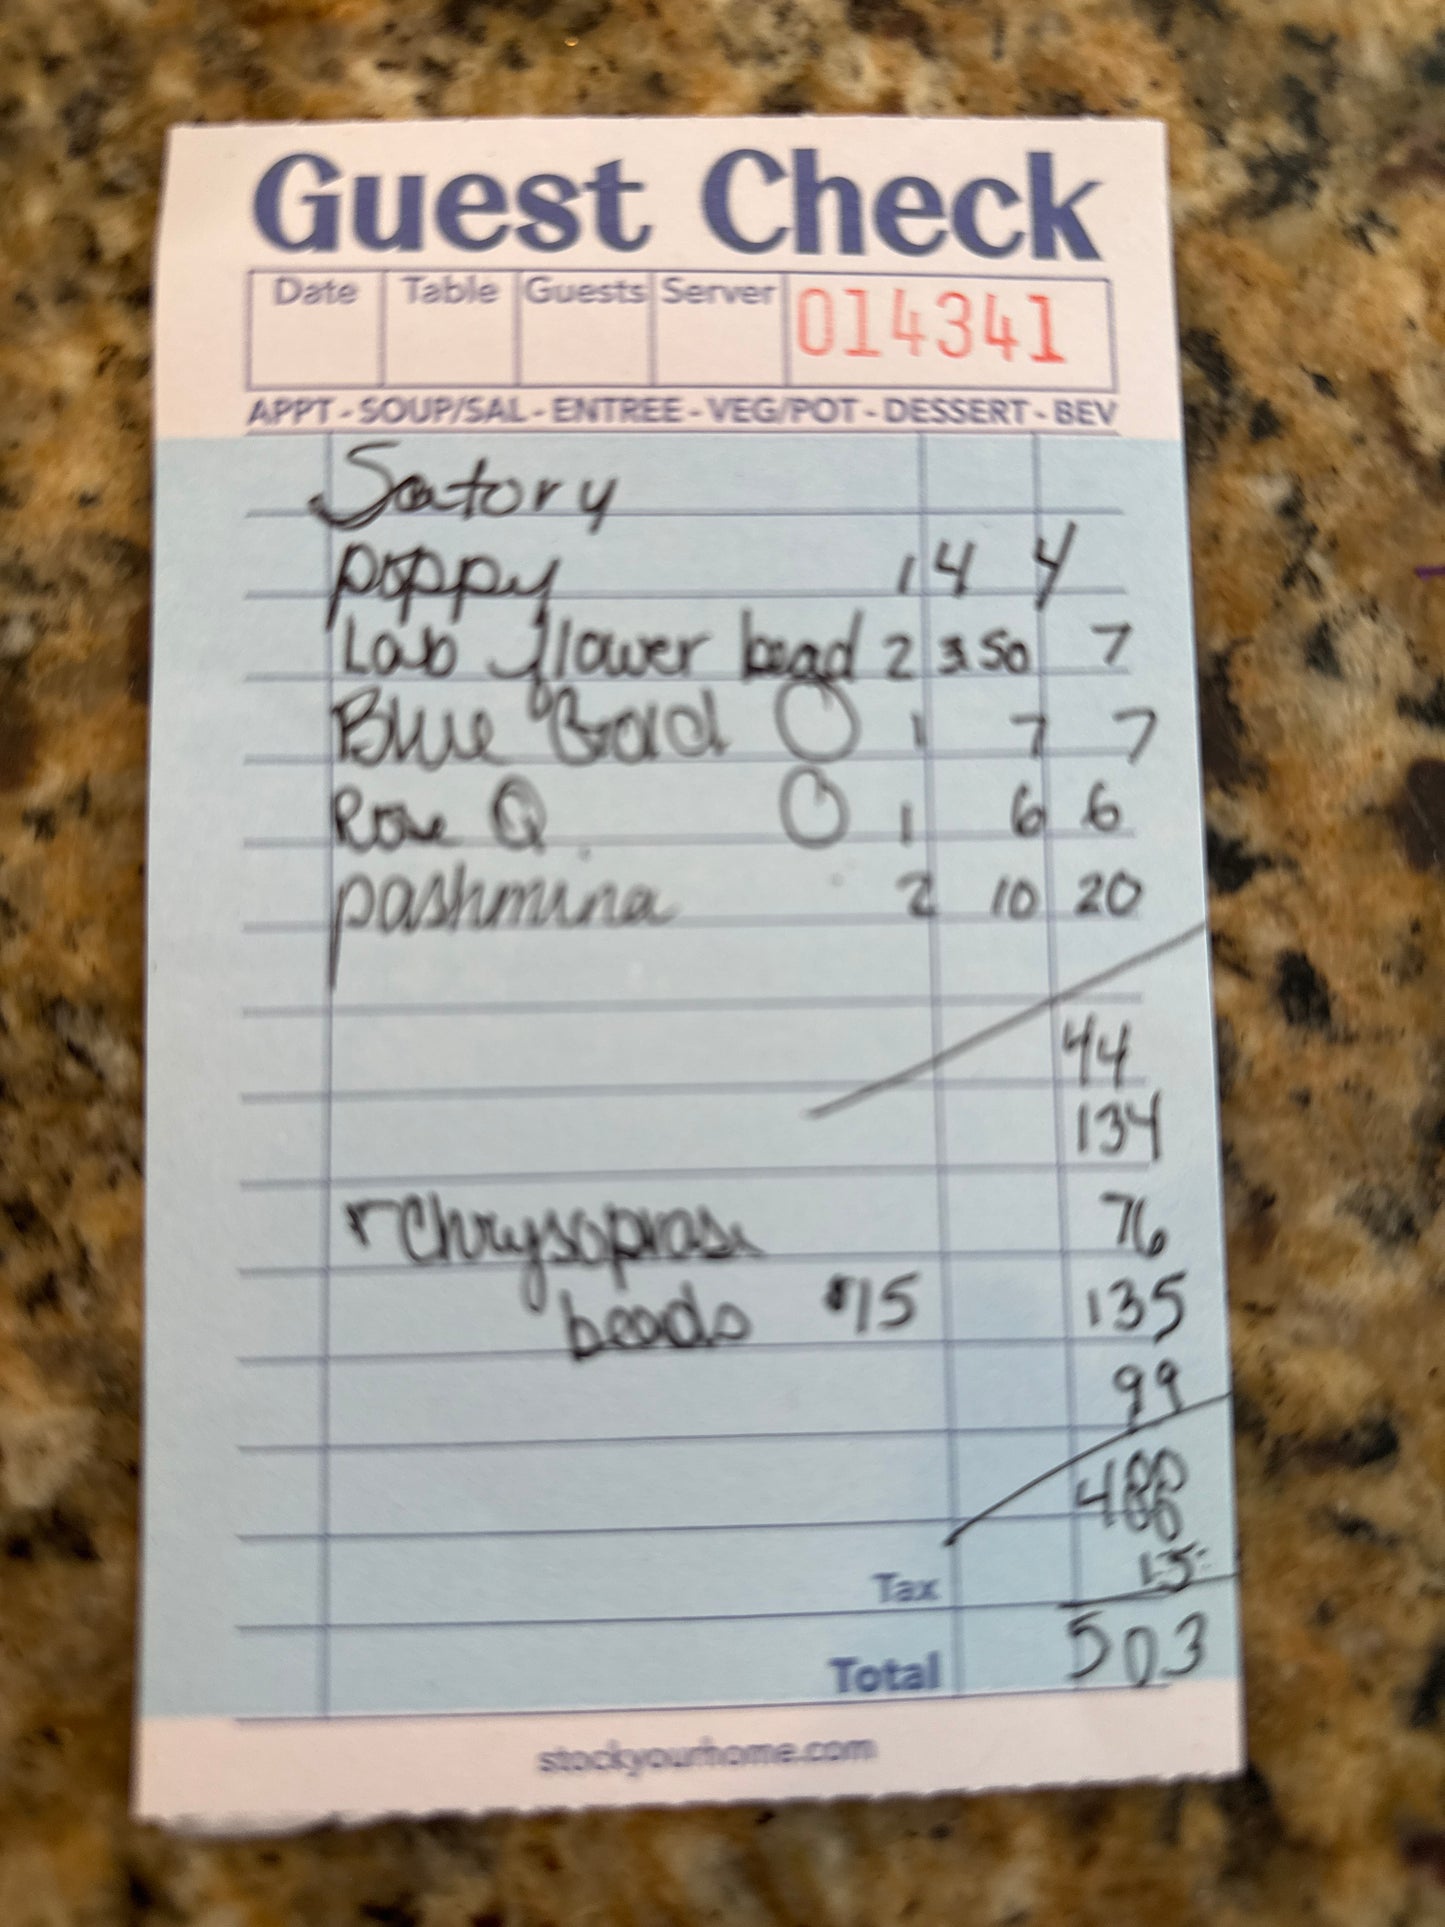 Guest Check
Date Table Guests Server 014341
APPT - SOUP/SAL - ENTREE - VEG/POT - DESSERT - BEV
Satory
poppy 1 4 4
Lab flower bead 2 3.50 7
Blue Gold 1 7 7
Rose Q 1 6 6
pashmina 2 10 20
44
134
Chrysoprase 76
beads $15 135
99
488
Tax 15
Total 503
stockyourhome.com